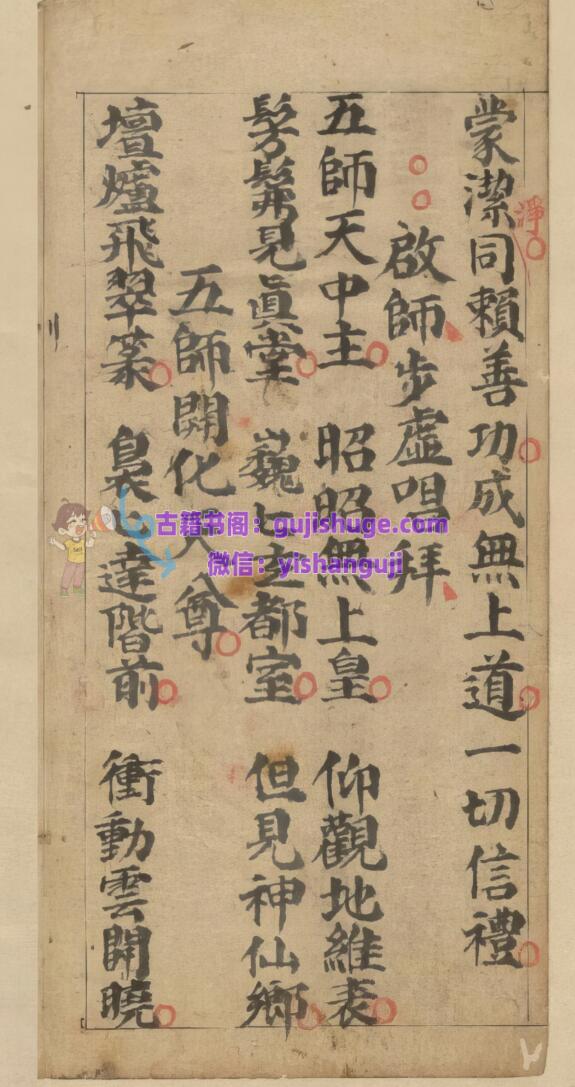 蒙潔同賴善功成無上道一切信禮
淨
啟師步虛唱拜
五師天中主 昭昭無上皇 仰觀地維表
髣髴見眞堂 巍〻玄都室 但見神仙鄉
五師開化天尊
壇爐飛翠篆 裊〻達階前 衝動雲開曉
古籍书阁：gujishuge.com
微信：yishanguji